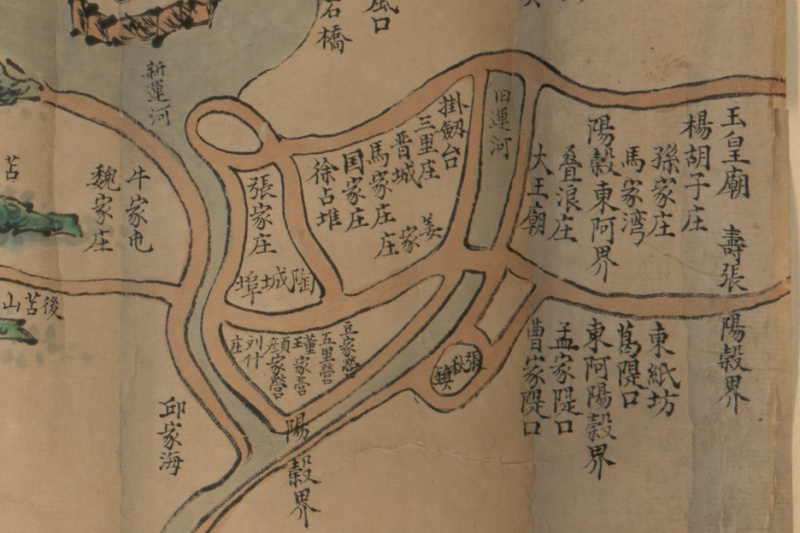 玉皇廟
壽張陽穀界
楊胡子庄
孫家庄
馬家湾
陽穀東阿界
叠浪庄
大王廟
東紙坊
葛隄口
東阿陽穀界
孟家隄口
曹家隄口
旧運河
掛劔台
三里庄
晋城
馬家庄
国家庄
徐占堆
姜家庄
張秋鎮
風口
石橋
張家庄
陶城埠
豆家營
五里營
董家營
王
顔家營
刘什庄
陽穀界
新運河
牛家屯
魏家庄
邱家海
苫
後苫山